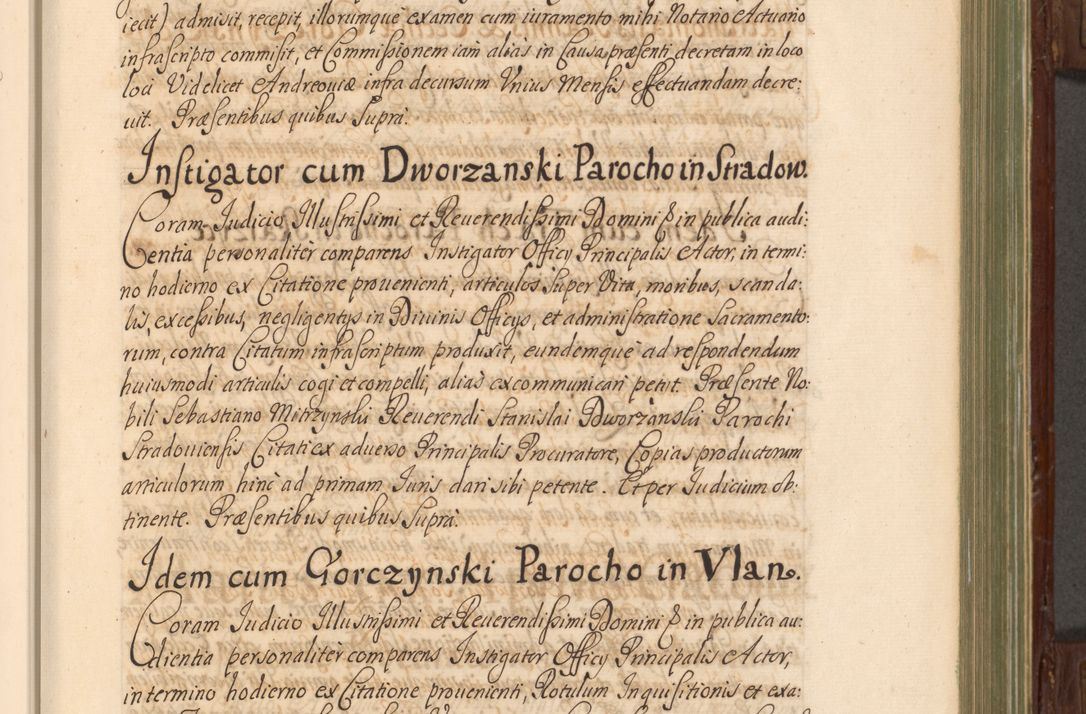 iecit) admisit, recepit, illorumque examen cum iuramento mihi Notario Actuario
infrascripto commisit, et Commissionem iam alias in Causa præsenti decretam in loco
loci Videlicet Andreoviæ infra decursum Unius Mensis effectuandam decre:
vit. Præsentibus quibus supra.
Instigator cum Dworzanski Parocho in Stradow.
Coram Iudicio Illustrissimi et Reuerendissimi Domini & in publica audi:
entia personalitèr comparens Instigator Officy Principalis Actor, in termi:
no hodierno ex Citatione prouenienti, articulos super Vita, moribus, scanda:
lis, excessibus, negligentys in Diuinis Officys, et administratione Sacramento:
rum, contra Citatum infrascriptum produxit, eundemque ad respondendum
huiusmodi articulis cogi et compelli, alias excommunicari petyt. Præsente No:
bili Sebastiano Metrzynski Reuerendi Stanislai Dworzanski Parochi
Stradouiensis Citati ex aduerso Principalis Procuratore, Copias productorum
articulorum hinc ad primam Iuris dari sibi petente. Et per Iudicium ob:
tinente. Præsentibus quibus supra.
Idem cum Gorczynski Parocho in Vlan.
Coram Iudicio Illustrissimi et Reuerendissimi Domini & in publica au:
dientia personalitèr comparens Instigator Officy Principalis Actor,
in termino hodierno ex Citatione prouenienti, Rotulum Inquisitionis et exa: